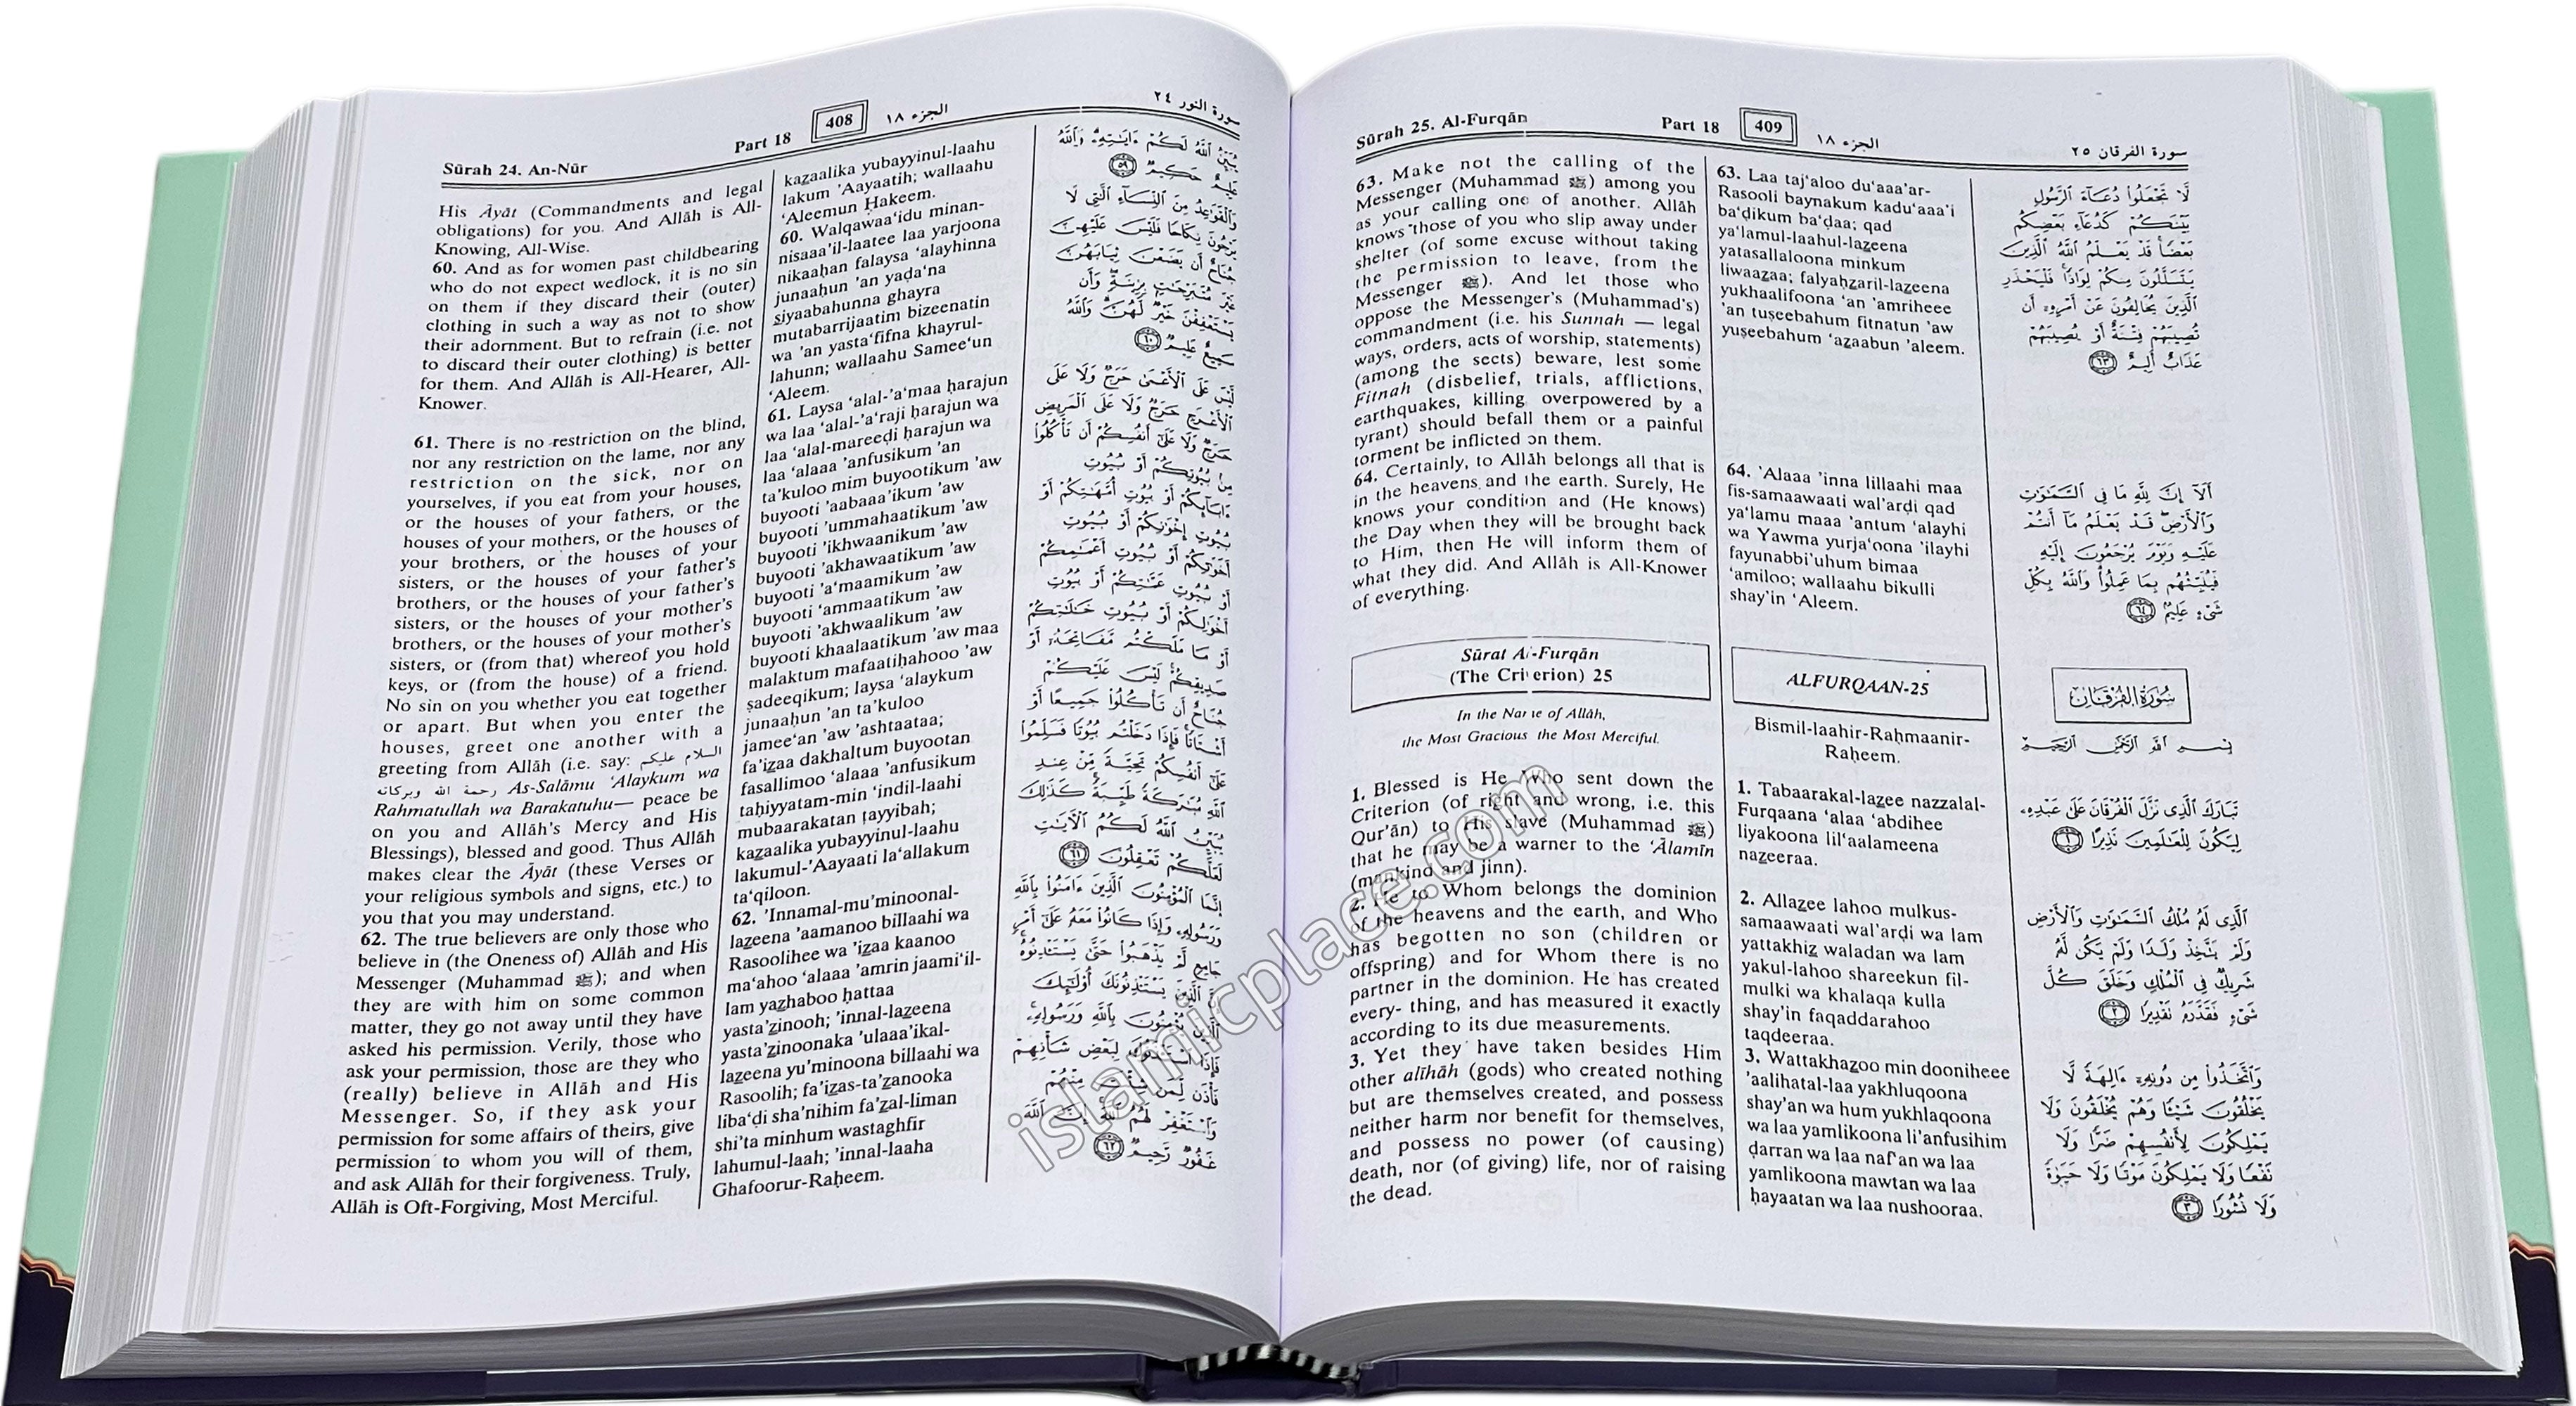 Sūrah 24. An-Nūr
Part 18
408
الجزء ١٨
سورة النور ٢٤
His Āyāt (Commandments and legal
obligations) for you. And Allāh is All-
Knowing, All-Wise.
60. And as for women past childbearing
who do not expect wedlock, it is no sin
on them if they discard their (outer)
clothing in such a way as not to show
their adornment. But to refrain (i.e. not
to discard their outer clothing) is better
for them. And Allāh is All-Hearer, All-
Knower.
61. There is no restriction on the blind,
nor any restriction on the lame, nor any
restriction on the sick, nor on
yourselves, if you eat from your houses,
or the houses of your fathers, or the
houses of your mothers, or the houses of
your brothers, or the houses of your
sisters, or the houses of your father's
brothers, or the houses of your father's
sisters, or the houses of your mother's
brothers, or the houses of your mother's
sisters, or (from that) whereof you hold
keys, or (from the house) of a friend.
No sin on you whether you eat together
or apart. But when you enter the
houses, greet one another with a
greeting from Allāh (i.e. say: السلام عليكم
رحمة الله وبركاته As-Salāmu ‘Alaykum wa
Rahmatullah wa Barakatuhu— peace be
on you and Allāh's Mercy and His
Blessings), blessed and good. Thus Allāh
makes clear the Āyāt (these Verses or
your religious symbols and signs, etc.) to
you that you may understand.
62. The true believers are only those who
believe in (the Oneness of) Allāh and His
Messenger (Muhammad ﷺ); and when
they are with him on some common
matter, they go not away until they have
asked his permission. Verily, those who
ask your permission, those are they who
(really) believe in Allāh and His
Messenger. So, if they ask your
permission for some affairs of theirs, give
permission to whom you will of them,
and ask Allāh for their forgiveness. Truly,
Allāh is Oft-Forgiving, Most Merciful.
kazaalika yubayyinul-laahu
lakum 'Aayaatih; wallaahu
‘Aleemun Ḥakeem.
60. Walqawaa‘idu minan-
nisaaa'il-laatee laa yarjoona
nikaaḥan falaysa ‘alayhinna
junaaḥun 'an yaḍa‘na
siyaabahunna ghayra
mutabarrijaatim bizeenatin
wa 'an yasta‘fifna khayrul-
lahunn; wallaahu Samee‘un
‘Aleem.
61. Laysa ‘alal-'a‘maa ḥarajun
wa laa ‘alal-'a‘raji ḥarajun wa
laa ‘alal-mareeḍi ḥarajun wa
laa ‘alaaa 'anfusikum 'an
ta'kuloo mim buyootikum 'aw
buyooti 'aabaaa'ikum 'aw
buyooti 'ummahaatikum 'aw
buyooti 'ikhwaanikum 'aw
buyooti 'akhawaatikum 'aw
buyooti 'a‘maamikum 'aw
buyooti ‘ammaatikum 'aw
buyooti 'akhwaalikum 'aw
buyooti khaalaatikum 'aw maa
malaktum mafaatiḥahooo 'aw
ṣadeeqikum; laysa ‘alaykum
junaaḥun 'an ta'kuloo
jamee‘an 'aw 'ashtaataa;
fa'izaa dakhaltum buyootan
fasallimoo ‘alaaa 'anfusikum
taḥiyyatam-min ‘indil-laahi
mubaarakatan ṭayyibah;
kazaalika yubayyinul-laahu
lakumul-'Aayaati la‘allakum
ta‘qiloon.
62. 'Innamal-mu'minoonal-
lazeena 'aamanoo billaahi wa
Rasoolihee wa 'izaa kaanoo
ma‘ahoo ‘alaaa 'amrin jaami‘il-
lam yazhaboo ḥattaa
yasta'zinooh; 'innal-lazeena
yasta'zinoonaka 'ulaaa'ikal-
lazeena yu'minoona billaahi wa
Rasoolih; fa'izas-ta'zanooka
liba‘ḍi sha'nihim fa'zal-liman
shi'ta minhum wastaghfir
lahumul-laah; 'innal-laaha
Ghafoorur-Raḥeem.
يُبَيِّنُ ٱللَّهُ لَكُمْ ءَايَٰتِهِۦ وَٱللَّهُ
عَلِيمٌ حَكِيمٌ ٥٩
وَٱلْقَوَٰعِدُ مِنَ ٱلنِّسَآءِ ٱلَّٰتِى لَا
يَرْجُونَ نِكَاحًا فَلَيْسَ عَلَيْهِنَّ
جُنَاحٌ أَن يَضَعْنَ ثِيَابَهُنَّ
غَيْرَ مُتَبَرِّجَٰتٍۭ بِزِينَةٍ وَأَن
يَسْتَعْفِفْنَ خَيْرٌ لَّهُنَّ وَٱللَّهُ
سَمِيعٌ عَلِيمٌ ٦٠
لَّيْسَ عَلَى ٱلْأَعْمَىٰ حَرَجٌ وَلَا عَلَى
ٱلْأَعْرَجِ حَرَجٌ وَلَا عَلَى ٱلْمَرِيضِ
حَرَجٌ وَلَا عَلَىٰٓ أَنفُسِكُمْ أَن تَأْكُلُوا۟
مِنۢ بُيُوتِكُمْ أَوْ بُيُوتِ
ءَابَآئِكُمْ أَوْ بُيُوتِ أُمَّهَٰتِكُمْ أَوْ
بُيُوتِ إِخْوَٰنِكُمْ أَوْ بُيُوتِ
أَخَوَٰتِكُمْ أَوْ بُيُوتِ أَعْمَٰمِكُمْ
أَوْ بُيُوتِ عَمَّٰتِكُمْ أَوْ بُيُوتِ
أَخْوَٰلِكُمْ أَوْ بُيُوتِ خَٰلَٰتِكُمْ
أَوْ مَا مَلَكْتُم مَّفَاتِحَهُۥٓ أَوْ
صَدِيقِكُمْ لَيْسَ عَلَيْكُمْ
جُنَاحٌ أَن تَأْكُلُوا۟ جَمِيعًا أَوْ
أَشْتَاتًا فَإِذَا دَخَلْتُم بُيُوتًا فَسَلِّمُوا۟
عَلَىٰٓ أَنفُسِكُمْ تَحِيَّةً مِّنْ عِندِ
ٱللَّهِ مُبَٰرَكَةً طَيِّبَةً كَذَٰلِكَ
يُبَيِّنُ ٱللَّهُ لَكُمُ ٱلْأَيَٰتِ
لَعَلَّكُمْ تَعْقِلُونَ ٦١
إِنَّمَا ٱلْمُؤْمِنُونَ ٱلَّذِينَ ءَامَنُوا۟ بِٱللَّهِ
وَرَسُولِهِۦ وَإِذَا كَانُوا۟ مَعَهُۥ عَلَىٰٓ أَمْرٍ
جَامِعٍ لَّمْ يَذْهَبُوا۟ حَتَّىٰ يَسْتَـْٔذِنُوهُ
إِنَّ ٱلَّذِينَ يَسْتَـْٔذِنُونَكَ أُو۟لَٰٓئِكَ
ٱلَّذِينَ يُؤْمِنُونَ بِٱللَّهِ وَرَسُولِهِۦ
فَإِذَا ٱسْتَـْٔذَنُوكَ لِبَعْضِ شَأْنِهِمْ
فَأْذَن لِّمَن شِئْتَ مِنْهُمْ
وَٱسْتَغْفِرْ لَهُمُ ٱللَّهَ إِنَّ ٱللَّهَ
غَفُورٌ رَّحِيمٌ ٦٢
Sūrah 25. Al-Furqān
Part 18
409
الجزء ١٨
سورة الفرقان ٢٥
63. Make not the calling of the
Messenger (Muhammad ﷺ) among you
as your calling one of another. Allāh
knows those of you who slip away under
shelter (of some excuse without taking
the permission to leave, from the
Messenger ﷺ). And let those who
oppose the Messenger's (Muhammad's)
commandment (i.e. his Sunnah — legal
ways, orders, acts of worship, statements)
(among the sects) beware, lest some
Fitnah (disbelief, trials, afflictions,
earthquakes, killing overpowered by a
tyrant) should befall them or a painful
torment be inflicted on them.
64. Certainly, to Allāh belongs all that is
in the heavens and the earth. Surely, He
knows your condition and (He knows)
the Day when they will be brought back
to Him, then He will inform them of
what they did. And Allāh is All-Knower
of everything.
Sūrat Al-Furqān
(The Criterion) 25
In the Name of Allāh,
the Most Gracious the Most Merciful.
1. Blessed is He Who sent down the
Criterion (of right and wrong, i.e. this
Qur'ān) to His slave (Muhammad ﷺ)
that he may be a warner to the ‘Ālamīn
(mankind and jinn).
2. He to Whom belongs the dominion
of the heavens and the earth, and Who
has begotten no son (children or
offspring) and for Whom there is no
partner in the dominion. He has created
every- thing, and has measured it exactly
according to its due measurements.
3. Yet they have taken besides Him
other alīhāh (gods) who created nothing
but are themselves created, and possess
neither harm nor benefit for themselves,
and possess no power (of causing)
death, nor (of giving) life, nor of raising
the dead.
63. Laa taj‘aloo du‘aaa'ar-
Rasooli baynakum kadu‘aaa'i
ba‘ḍikum ba‘ḍaa; qad
ya‘lamul-laahul-lazeena
yatasallaloona minkum
liwaazaa; falyaḥzaril-lazeena
yukhaalifoona ‘an 'amriheee
'an tuṣeebahum fitnatun 'aw
yuṣeebahum ‘azaabun 'aleem.
64. 'Alaaa 'inna lillaahi maa
fis-samaawaati wal'arḍi qad
ya‘lamu maaa 'antum ‘alayhi
wa Yawma yurja‘oona 'ilayhi
fayunabbi'uhum bimaa
‘amiloo; wallaahu bikulli
shay'in ‘Aleem.
ALFURQAAN-25
Bismil-laahir-Raḥmaanir-
Raḥeem.
1. Tabaarakal-lazee nazzalal-
Furqaana ‘alaa ‘abdihee
liyakoona lil‘aalameena
nazeeraa.
2. Allazee lahoo mulkus-
samaawaati wal'arḍi wa lam
yattakhiz waladan wa lam
yakul-lahoo shareekun fil-
mulki wa khalaqa kulla
shay'in faqaddarahoo
taqdeeraa.
3. Wattakhazoo min dooniheee
'aalihatal-laa yakhluqoona
shay'an wa hum yukhlaqoona
wa laa yamlikoona li'anfusihim
ḍarran wa laa naf‘an wa laa
yamlikoona mawtan wa laa
ḥayaatan wa laa nushooraa.
لَّا تَجْعَلُوا۟ دُعَآءَ ٱلرَّسُولِ
بَيْنَكُمْ كَدُعَآءِ بَعْضِكُم
بَعْضًا قَدْ يَعْلَمُ ٱللَّهُ ٱلَّذِينَ
يَتَسَلَّلُونَ مِنكُمْ لِوَاذًا فَلْيَحْذَرِ
ٱلَّذِينَ يُخَالِفُونَ عَنْ أَمْرِهِۦٓ أَن
تُصِيبَهُمْ فِتْنَةٌ أَوْ يُصِيبَهُمْ
عَذَابٌ أَلِيمٌ ٦٣
أَلَآ إِنَّ لِلَّهِ مَا فِى ٱلسَّمَٰوَٰتِ
وَٱلْأَرْضِ قَدْ يَعْلَمُ مَآ أَنتُمْ
عَلَيْهِ وَيَوْمَ يُرْجَعُونَ إِلَيْهِ
فَيُنَبِّئُهُم بِمَا عَمِلُوا۟ وَٱللَّهُ بِكُلِّ
شَىْءٍ عَلِيمٌۢ ٦٤
سُورَةُ الفُرْقَان
بِسْمِ ٱللَّهِ ٱلرَّحْمَٰنِ ٱلرَّحِيمِ
تَبَارَكَ ٱلَّذِى نَزَّلَ ٱلْفُرْقَانَ عَلَىٰ عَبْدِهِۦ
لِيَكُونَ لِلْعَٰلَمِينَ نَذِيرًا ١
ٱلَّذِى لَهُۥ مُلْكُ ٱلسَّمَٰوَٰتِ وَٱلْأَرْضِ
وَلَمْ يَتَّخِذْ وَلَدًا وَلَمْ يَكُن لَّهُۥ
شَرِيكٌ فِى ٱلْمُلْكِ وَخَلَقَ كُلَّ
شَىْءٍ فَقَدَّرَهُۥ تَقْدِيرًا ٢
وَٱتَّخَذُوا۟ مِن دُونِهِۦٓ ءَالِهَةً لَّا
يَخْلُقُونَ شَيْـًٔا وَهُمْ يُخْلَقُونَ وَلَا
يَمْلِكُونَ لِأَنفُسِهِمْ ضَرًّا وَلَا
نَفْعًا وَلَا يَمْلِكُونَ مَوْتًا وَلَا حَيَوٰةً
وَلَا نُشُورًا ٣
islamicplace.com